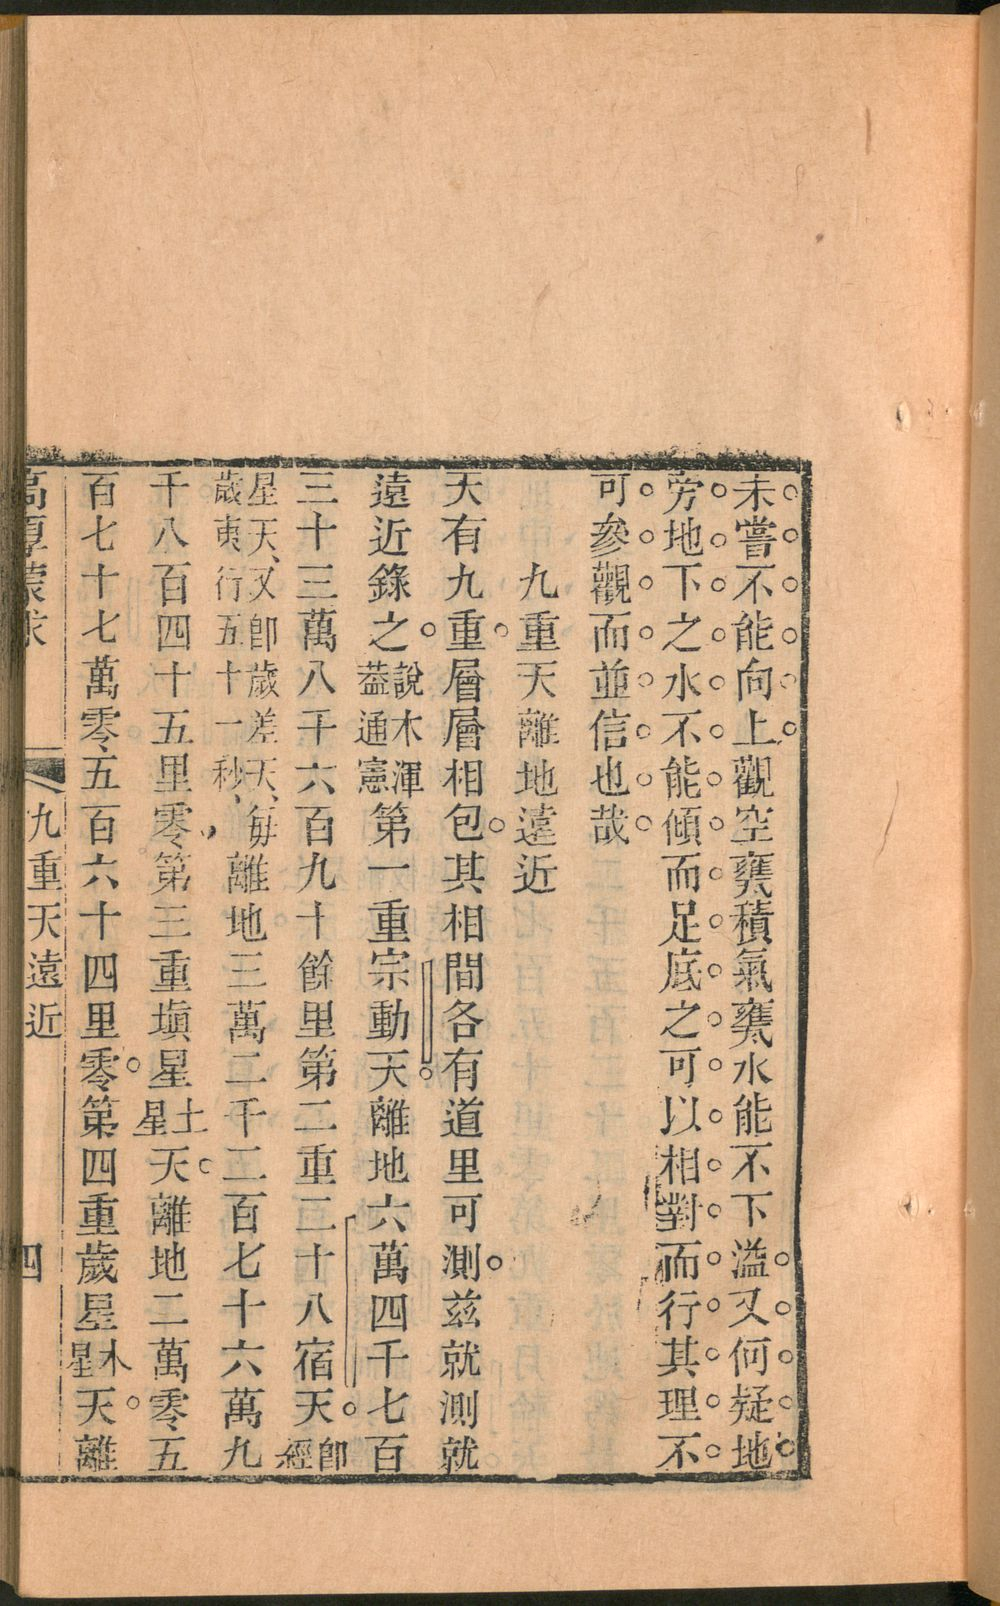 未嘗不能向上觀空甕積氣甕水能不下溢又何疑地
旁地下之水不能傾而足底之可以相對而行其理不
可參觀而並信也哉
九重天離地遠近
天有九重層層相包其相間各有道里可測茲就測就
遠近錄之說木渾葢通憲第一重宗動天離地六萬四千七百
三十三萬八千六百九十餘里第二重二十八宿天卽經
星天、又卽歲差天、每歲東行五十一秒、離地三萬二千二百七十六萬九
千八百四十五里零第三重塡星土星天離地二萬零五
百七十七萬零五百六十四里零第四重歲星木星天離
高厚蒙求
九重天遠近
四